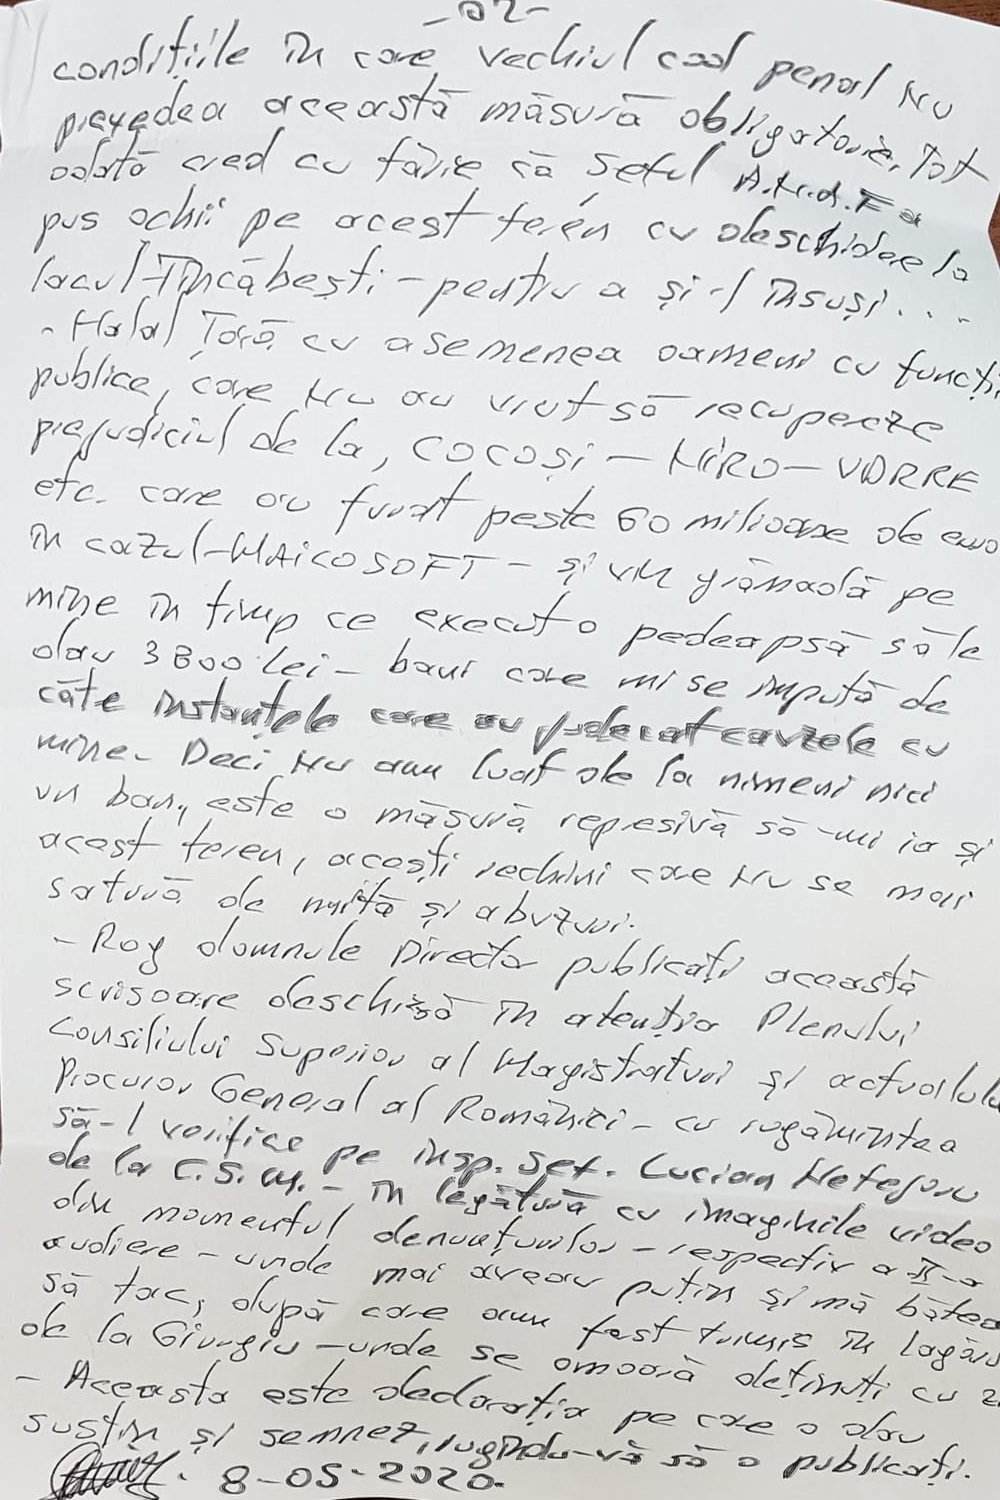 -02-
condițiile în care vechiul cod penal nu
prevedea această măsură obligatorie. Tot
odată cred cu tărie că șeful A.N.A.F a
pus ochii pe acest teren cu deschidere la
lacul-Tîncăbești-pentru a și-l însuși...
- Halal Țară cu asemenea oameni cu funcții
publice, care nu au vrut să recupereze
prejudiciul de la, COCOȘI - NIRO - VORRE
etc. care au furat peste 60 milioane de euro
în cazul-MAICOSOFT - și vin grămadă pe
mine în timp ce execut o pedeapsă să le
dau 3800 lei - bani care mi se impută de
câte instanțele care au judecat cauzele cu
mine. Deci nu am luat de la nimeni nici
un ban, este o măsură represivă să-mi ia și
acest teren, acești rechini care nu se mai
satură de mită și abuzuri.
- Rog domnule Director publicați această
scrisoare deschisă în atenția Plenului
Consiliului Superior al Magistraturi și actualului
Procuror General al României - cu rugămintea
să-l verifice pe insp. șef. Lucian Netejoru
de la C.S.M. - în legătură cu imaginile video
din momentul denunțurilor - respectiv a II-a
audiere - unde mai aveau puțin și mă băteau
să tac, după care am fost trimis în lagărul
de la Giurgiu - unde se omoară deținuți cu
- Aceasta este declarația pe care o dau
susțin și semnez, rugându-vă să o publicați.
8-05-2020.